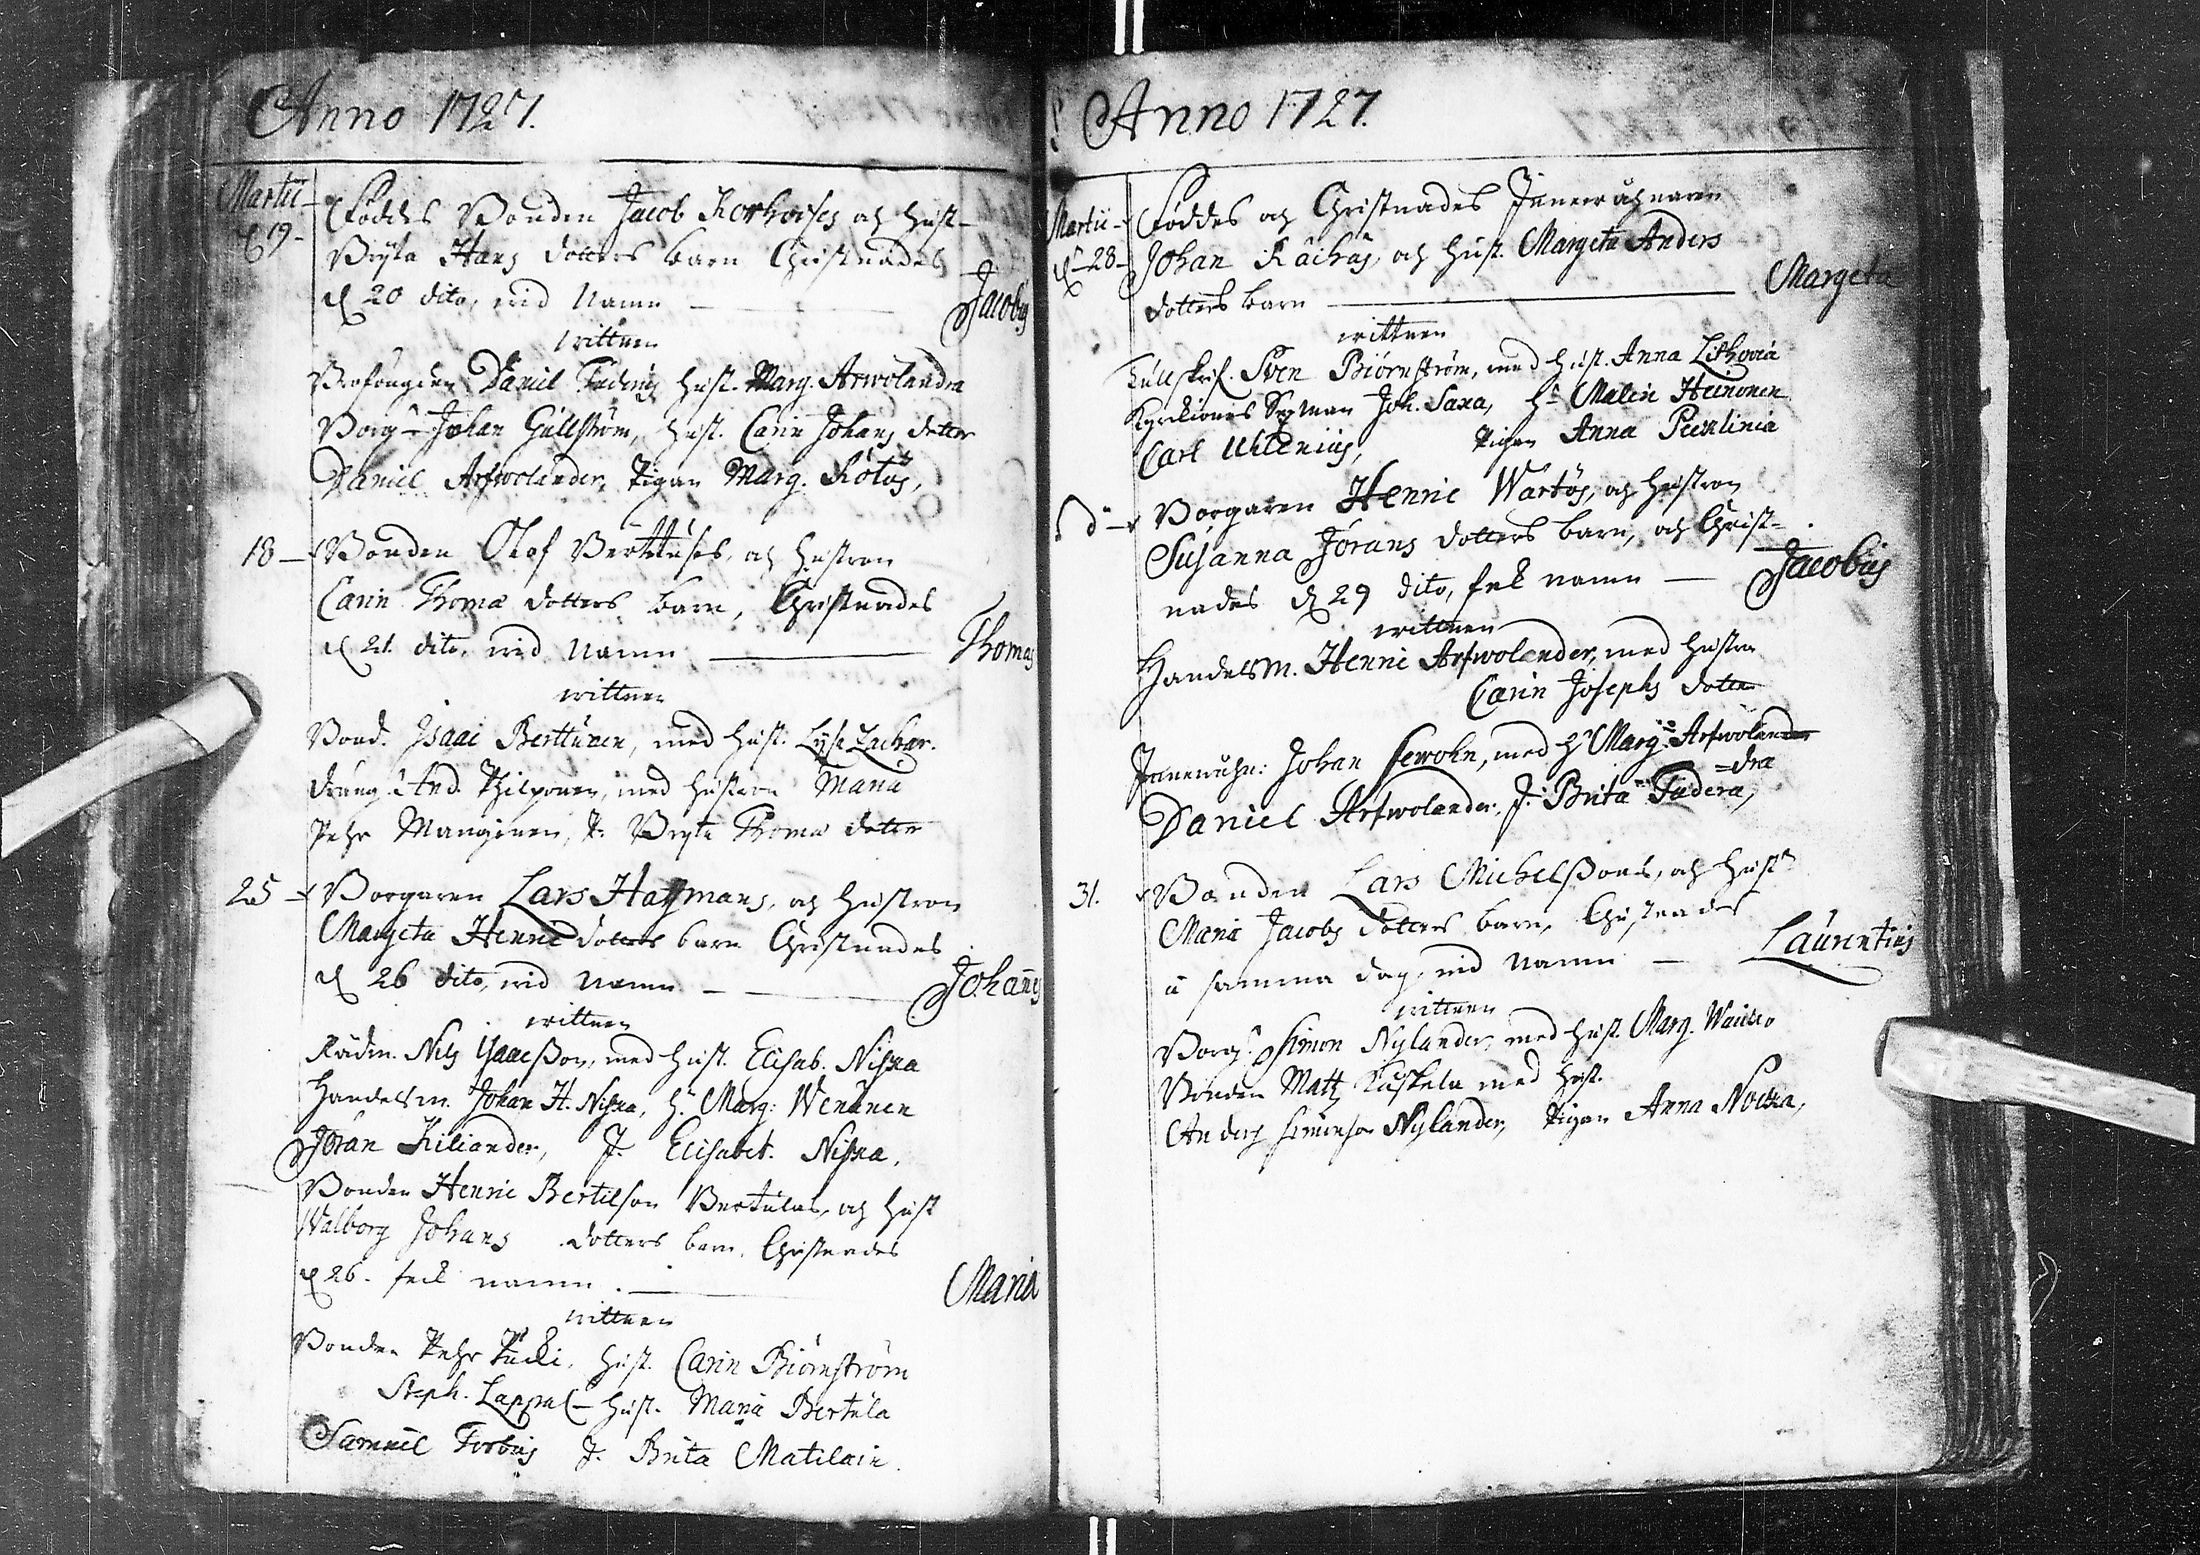 Anno 1727.
Martii
d 19
Föddes Bonden Jacob Korhoises och hust-
Brijta Hans dotters barn Christnades
d 20 dito, wid Namn — Jacobus
wittnen
Daniel Fuderus hust. Marg. Arwolandra
Borg. Johan Gullstrøm, hust. Carin Johans dotter
Daniel Arfwolander, Pigan Marg. Rötös,
18 — Bonden Olof Berttuses, och hustron
Carin Thomæ dotters barn, Christnades
d 21 dito, wid Namn — Thomas
wittnen
Bond. Isaac Berttunen, med hust. Lyse Zachar.
dräng. And. Philponen, med hustru Maria
Pehr Manginen, P. Brijta Thomæ dotter
25 — Borgaren Lars Haymans, och hustron
Margeta Henric dotters barn Christnades
d 26 dito, wid Namn — Johannes
wittnen
Rådm. Nils Isaacsson, med hust. Elisab. Niska
Handelsm. Johan H. Niska, h. Marg: Wenänen
Jöran Kiliander, J. Elisabet. Niska.
Bonden Henric Bertilson Bertulas, och hust
Walborg Johans dotters barn, Christnades
d 26. feck namn — Maria
wittnen
Bonden Pehr Pucki, hust. Carin Biörnström
Steph. Lappal— hust. Maria Bertula
Samuel Forbus J. Brita Matilain
Anno 1727.
Martii
d 28
Föddes och Christnades
Johan Räihäs, och hust. Margeta Anders
dotters barn — Margeta
wittnen
Tullskrif. Sven Biörnström, med hust. Anna Lithovia
Joh. Saxa, h- Malin Heinonen
Carl Uhlenius, Pigan Anna Peexlinia
d — Borgaren Henric Wärtös, och hustron
Susanna Jörans dotters barn, och Christ-
nades d 29 dito, fek namn — Jacobus
wittnen
Handelsm. Henric Arfwolander, med hustru
Carin Josephs dotter
Johan Sewohn, med h Marg: Arfwolander
=dra
Daniel Arfwolander, J. Brita Fudera,
31. Bonden Lars Michelssons, och hust
Maria Jacobs dotters barn, Christnades
samma dag, wid Namn — Laurentius
wittnen
Borg. Simon Nylander, med hust. Marg.
Bonden Matz Kuskela med hust.
Anders Simonson Nylander, Pigan Anna